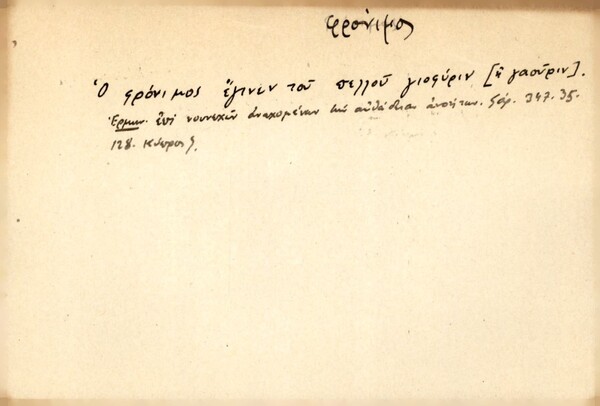 φρόνιμος
Ὁ φρόνιμος ἔγινεν τοῦ πελλοῦ γιοφύριν [ἢ γαούριν].
Ἑρμην. ἐπὶ νουνεχῶν ἀνεχομένων τὴν αὐθάδειαν ἀνοήτων. Σάρ. 347. 35.
128. Κύπρος